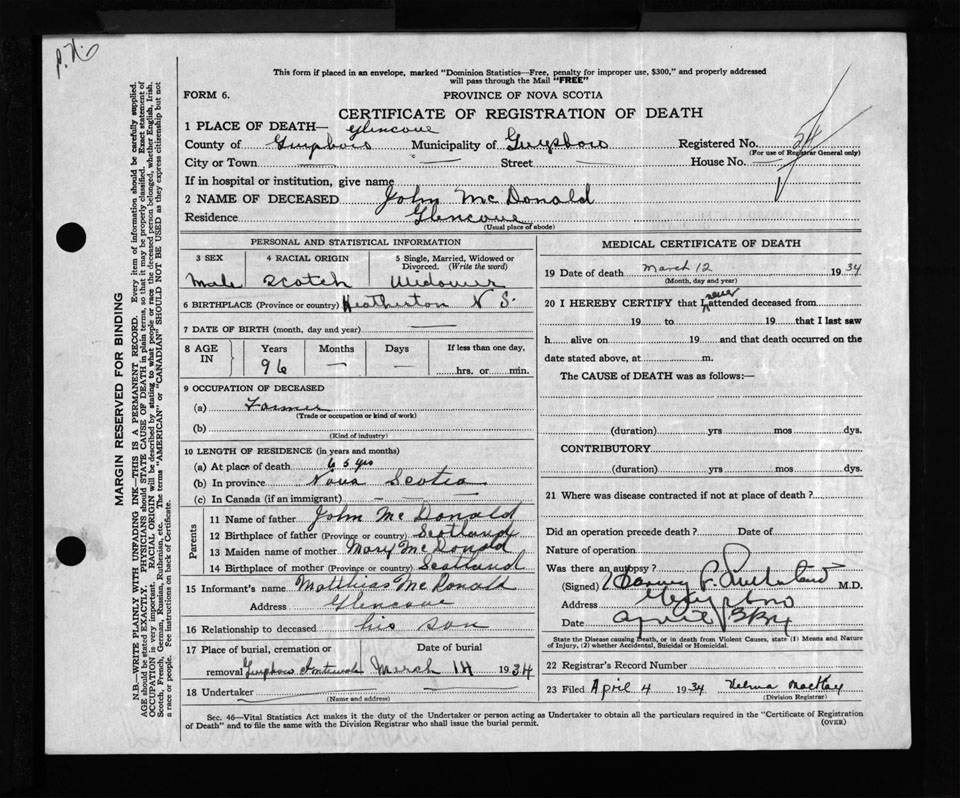 P.N.
This form if placed in an envelope, marked "Dominion Statistics—Free, penalty for improper use, $300," and properly addressed
will pass through the Mail "FREE"
FORM 6.
PROVINCE OF NOVA SCOTIA
CERTIFICATE OF REGISTRATION OF DEATH
1 PLACE OF DEATH— Glencove
County of Guysboro Municipality of Guysboro Registered No. 24
(For use of Registrar General only)
City or Town — Street — House No. —
If in hospital or institution, give name
2 NAME OF DECEASED John McDonald
Residence Glencove
(Usual place of abode)
MARGIN RESERVED FOR BINDING
N.B.—WRITE PLAINLY WITH UNFADING INK—THIS IS A PERMANENT RECORD. Every item of information should be carefully supplied.
AGE should be stated EXACTLY. PHYSICIANS should STATE CAUSE OF DEATH in plain terms, so that it may be properly classified. Exact statement of
OCCUPATION is very important. RACIAL ORIGIN will be described by stating to what people or race the deceased person belonged, whether English, Irish,
Scotch, French, German, Russian, Ruthenian, etc. The terms "AMERICAN" or "CANADIAN" SHOULD NOT BE USED as they express citizenship but not
a race or people. See instructions on back of Certificate.
PERSONAL AND STATISTICAL INFORMATION
3 SEX 4 RACIAL ORIGIN 5 Single, Married, Widowed or
Divorced. (Write the word)
Male Scotch Widower
6 BIRTHPLACE (Province or country) Heatherton N S.
7 DATE OF BIRTH (month, day and year) —
8 AGE IN Years Months Days If less than one day,
96 — — hrs. or min.
9 OCCUPATION OF DECEASED
(a) Farmer
(Trade or occupation or kind of work)
(b)
(Kind of industry)
10 LENGTH OF RESIDENCE (in years and months)
(a) At place of death 65 yrs
(b) In province Nova Scotia
(c) In Canada (if an immigrant) — — —
Parents
11 Name of father John McDonald
12 Birthplace of father (Province or country) Scotland
13 Maiden name of mother Mary McDonald
14 Birthplace of mother (Province or country) Scotland
15 Informant's name Matthias McDonald
Address Glencove
16 Relationship to deceased his son
17 Place of burial, cremation or Date of burial
removal Guysboro March 14 1934
18 Undertaker
(Name and address)
MEDICAL CERTIFICATE OF DEATH
19 Date of death March 12 1934
(Month, day and year)
never
20 I HEREBY CERTIFY that I attended deceased from
19 to 19 that I last saw
h alive on 19 and that death occurred on the
date stated above, at m.
The CAUSE of DEATH was as follows:—
(duration) yrs mos dys.
CONTRIBUTORY
(duration) yrs mos dys.
21 Where was disease contracted if not at place of death?
Did an operation precede death? Date of
Nature of operation
Was there an autopsy?
(Signed) Harvey P. Sutherland M.D.
Address Guysboro
Date April 3
State the Disease causing Death, or in death from Violent Causes, state (1) Means and Nature
of Injury, (2) whether Accidental, Suicidal or Homicidal.
22 Registrar's Record Number
23 Filed April 4 1934 Velma MacKay
(Division Registrar)
Sec. 46—Vital Statistics Act makes it the duty of the Undertaker or person acting as Undertaker to obtain all the particulars required in the "Certificate of Registration
of Death" and to file the same with the Division Registrar who shall issue the burial permit. (OVER)